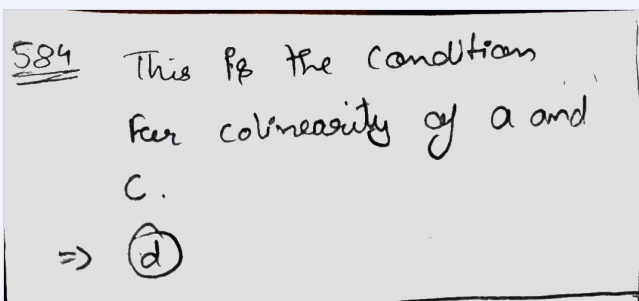 584 This is the condition
for colinearity of a and
c.
=> d